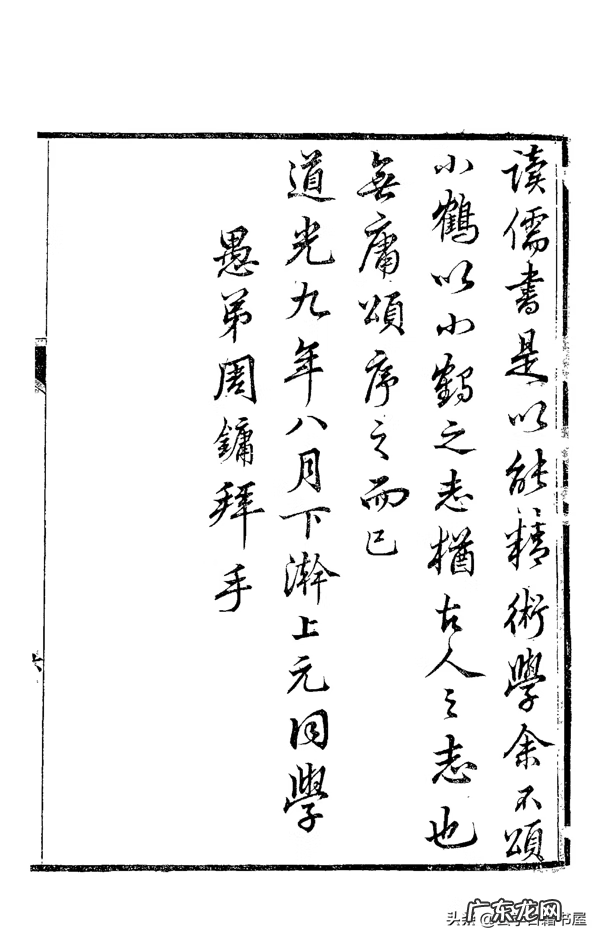 读儒書是以能精術學余不頌
小鶴以小鶴之志猶古人之志也
無庸頌序之而已
道光九年八月下澣上元同學
愚弟周鏞拜手
六
广东龙网